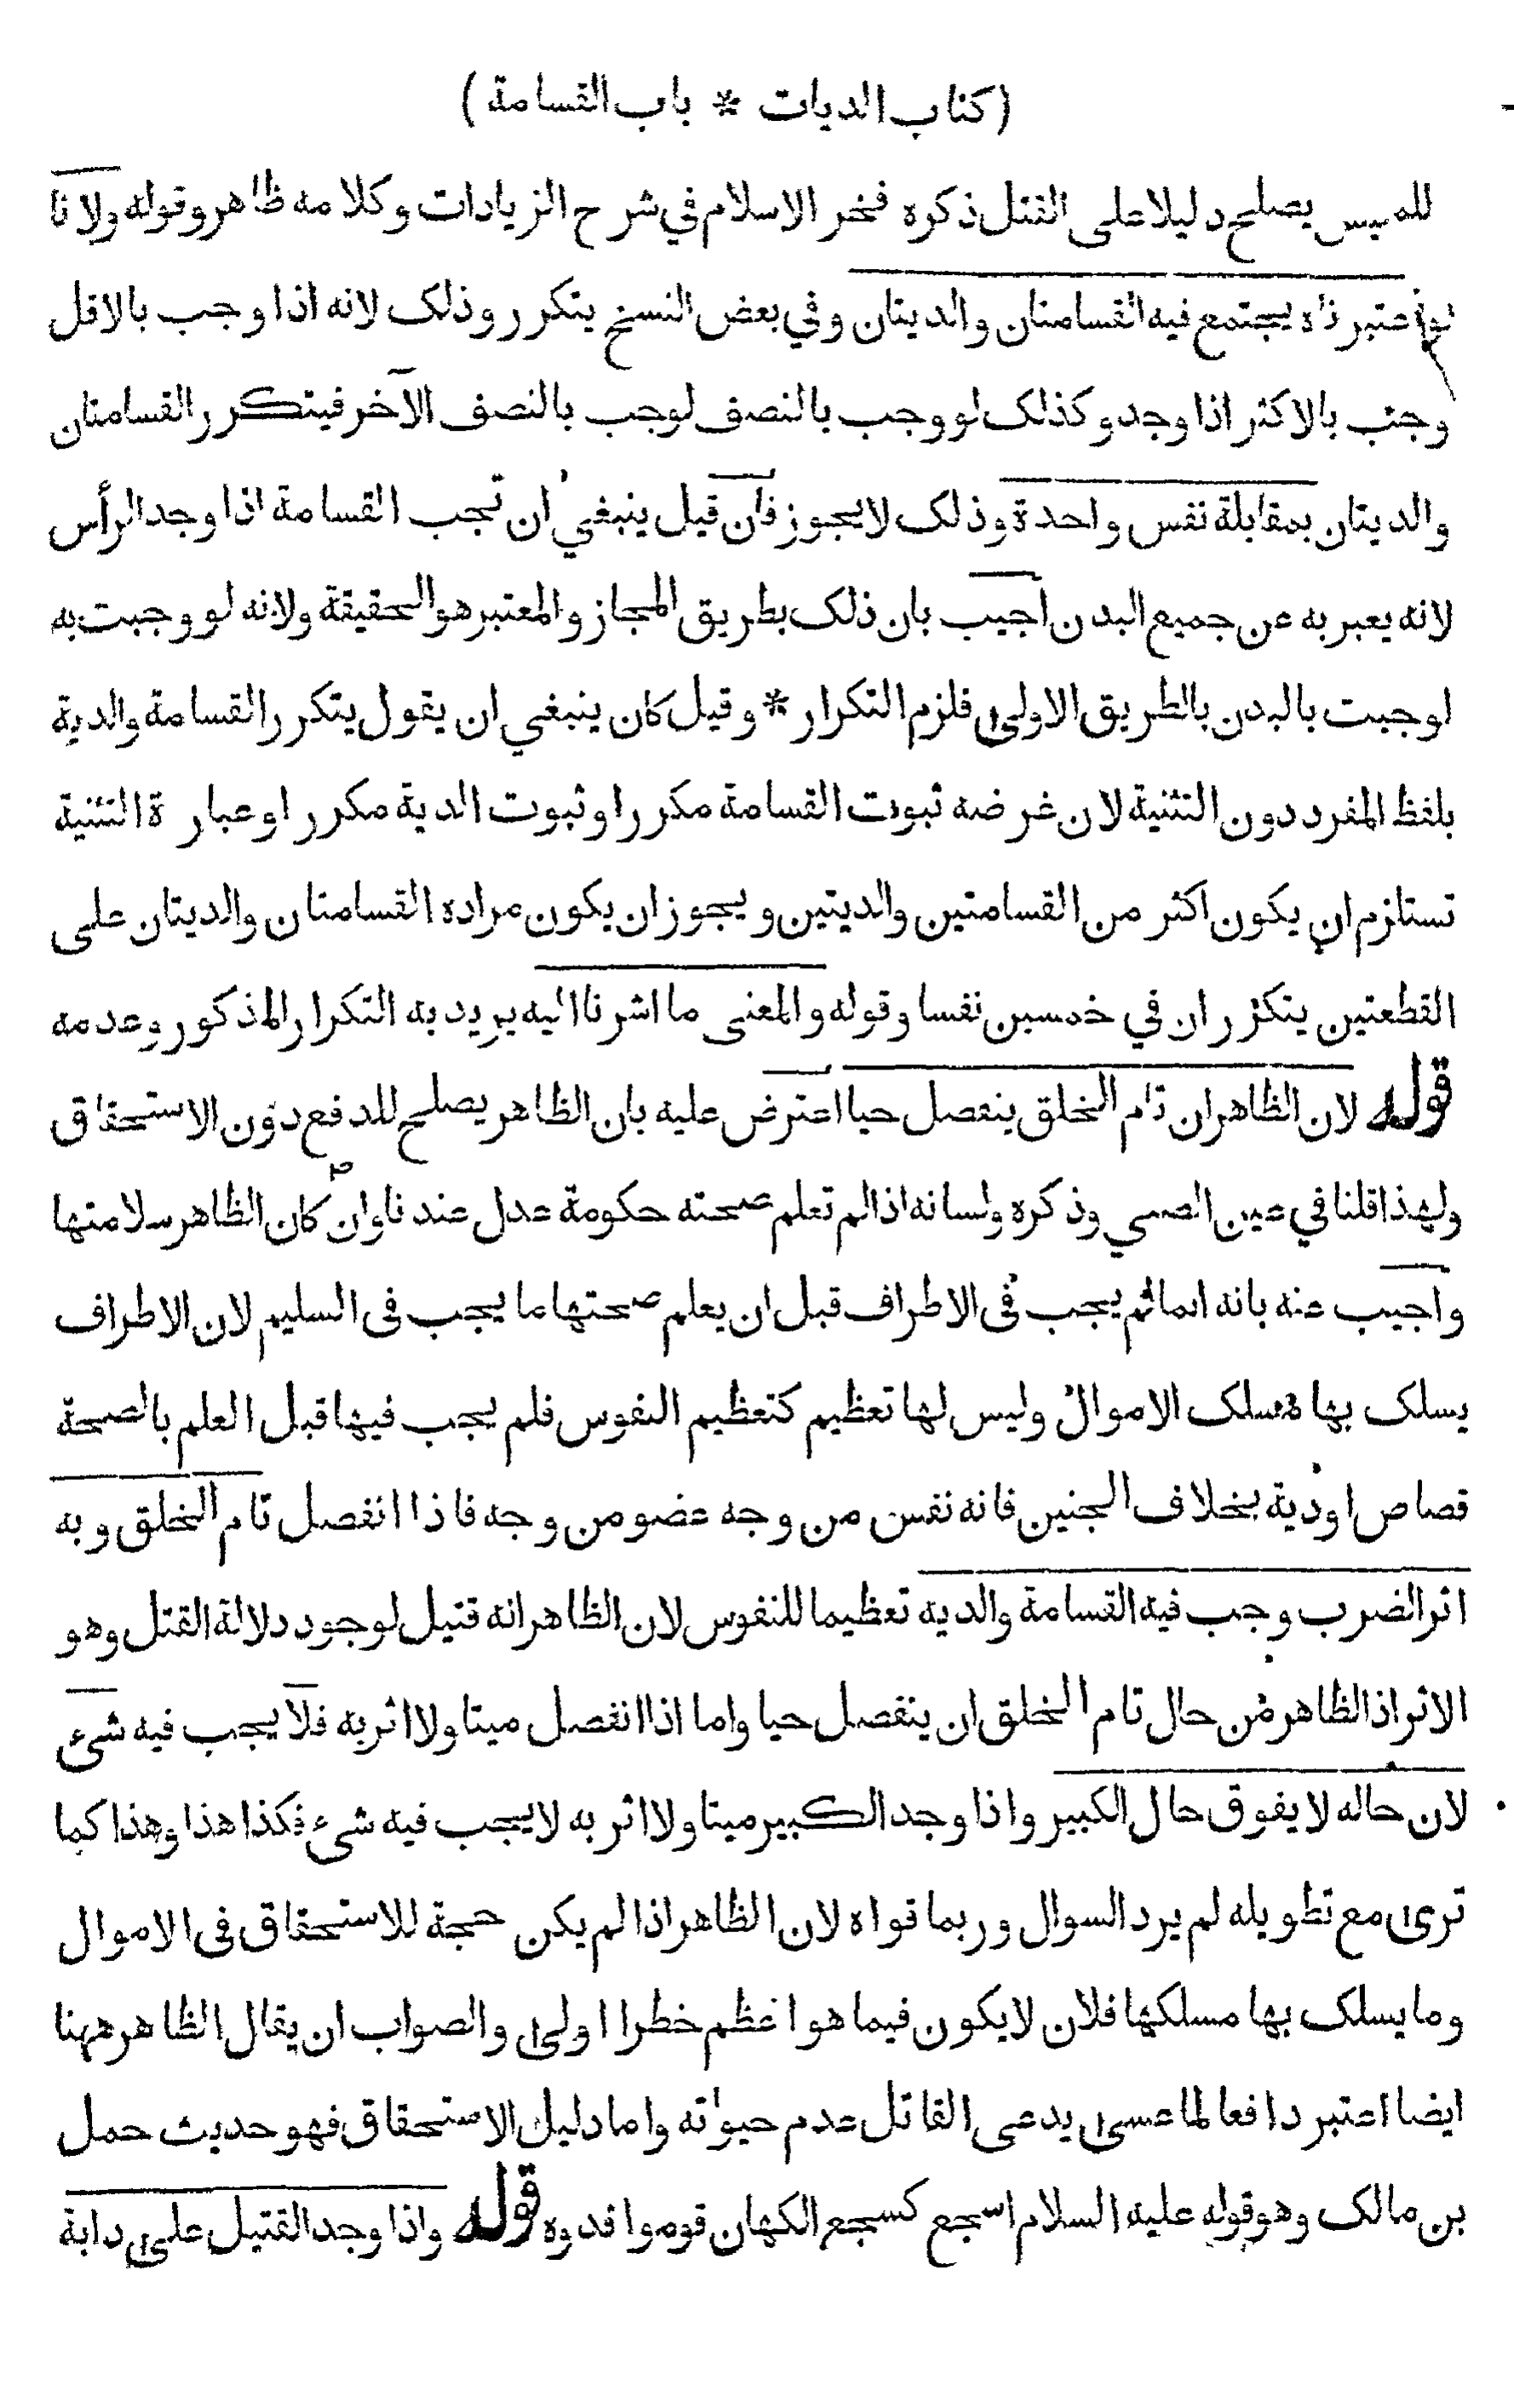 (كتاب الديات * باب القسامة)
للميس يصلح دليلا على القتل ذكره فخر الاسلام في شرح الزيادات وكلامه ظاهر وقوله ولانا
لو اعتبرناه يجتمع فيه القسامتان والديتان وفي بعض النسخ يتكرر وذلك لانه اذا وجب بالاقل
وجب بالاكثر اذا وجد وكذلك لو وجب بالنصف لوجب بالنصف الآخر فيتكرر القسامتان
والديتان بمقابلة نفس واحدة وذلك لا يجوز فان قيل ينبغي ان تجب القسامة اذا وجد الرأس
لانه يعبر به عن جميع البدن اجيب بان ذلك بطريق المجاز والمعتبر هو الحقيقة ولانه لو وجبت به
لوجبت بالبدن بالطريق الاولى فلزم التكرار * وقيل كان ينبغي ان يقول يتكرر القسامة والدية
بلفظ المفرد دون التثنية لان غرضه ثبوت القسامة مكررا وثبوت الدية مكررا وعبارة التثنية
تستلزم ان يكون اكثر من القسامتين والديتين ويجوز ان يكون مراده القسامتان والديتان على
القطعتين يتكرران في خمسين نفسا وقوله والمعنى ما اشرنا اليه يريد به التكرار المذكور وعدمه
قوله لان الظاهر ان تام الخلق ينفصل حيا اعترض عليه بان الظاهر يصلح للدفع دون الاستحقاق
ولهذا قلنا في عين الصبي وذكره ولسانه اذا لم تعلم صحته حكومة عدل عندنا وان كان الظاهر سلامتها
واجيب عنه بانه انما لم يجب فى الاطراف قبل ان يعلم صحتها ما يجب فى السليم لان الاطراف
يسلك بها مسلك الاموال وليس لها تعظيم كتعظيم النفوس فلم يجب فيها قبل العلم بالصحة
قصاص او دية بخلاف الجنين فانه نفس من وجه عضو من وجه فاذا انفصل تام الخلق وبه
اثر الضرب وجب فيه القسامة والديه تعظيما للنفوس لان الظاهر انه قتيل لوجود دلالة القتل وهو
الاثر اذ الظاهر من حال تام الخلق ان ينفصل حيا واما اذا انفصل ميتا ولا اثر به فلا يجب فيه شئ
لان حاله لا يفوق حال الكبير واذا وجد الكبير ميتا ولا اثر به لا يجب فيه شئ فكذا هذا وهذا كما
ترى مع تطويله لم يرد السوال وربما قواه لان الظاهر اذا لم يكن حجة للاستحقاق فى الاموال
وما يسلك بها مسلكها فلان لا يكون فيما هو اعظم خطرا اولى والصواب ان يقال الظاهر ههنا
ايضا اعتبر دافعا لما عسى يدعى القاتل عدم حيوته واما دليل الاستحقاق فهو حديث حمل
بن مالك وهو قوله عليه السلام اسجع كسجع الكهان قوموا فدوه قوله واذا وجد القتيل على دابة